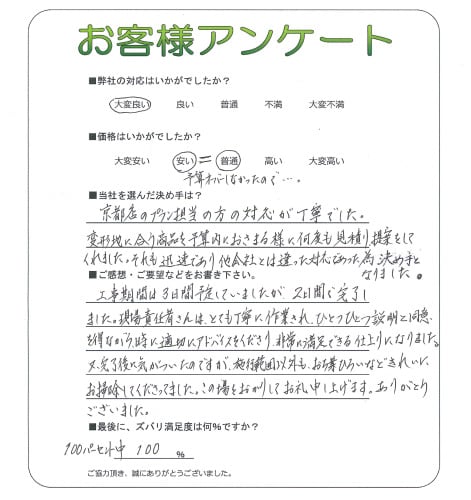 お客様アンケート
■弊社の対応はいかがでしたか?
大変良い 良い 普通 不満 大変不満
■価格はいかがでしたか?
大変安い 安い = 普通 高い 大変高い
予算オーバーしなかったので…。
■当社を選んだ決め手は?
京都店のプラン担当の方の対応が丁寧でした。
変形地に合う商品を予算内におさまる様に何度も見積り提案をして
くれました。それも迅速であり他会社とは違った対応であった為 決め手と
なりました。
■ご感想・ご要望などをお書き下さい。
工事期間は3日間予定していましたが 2日間で完了し
ました。現場責任者さんは、とても丁寧に作業され、ひとつひとつ説明と同意
を得ながら、時に適切にアドバイスをくださり、非常に満足できる仕上りになりました。
又、完了後に気がついたのですが、施行範囲以外も、お葉ひろいなどきれいに
お掃除してくださってました。この場をおかりしてお礼申し上げます。ありがとう
ございました。
■最後に、ズバリ満足度は何%ですか?
100パーセント中 100 %
ご協力頂き、誠にありがとうございました。